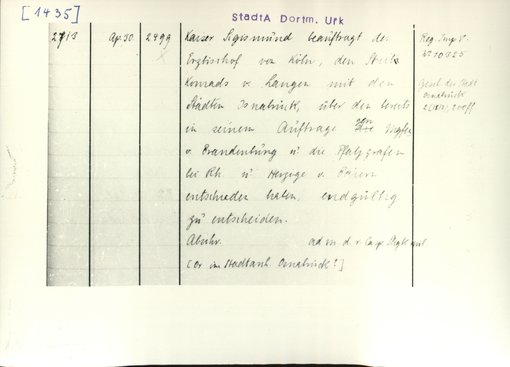 [1435]
StadtA Dortm. Urk
2713 Ap. 30. 2499 Kaiser Sigismund beauftragt den
Erzbischof von Köln, den Streit
Konrads v. Langen mit den
Städten Osnabrück, über den bereits
in seinem Auftrage
v. Brandenburg u. die Pfalzgrafen
bei Rh. u Herzöge v. Baiern
entschieden haben, endgültig
zu entscheiden.
Abschr. ad m. d. r. Casp. Sligk
[Or im Stadtarch. Osnabrück?]
Reg. Imp. V.
Nr 10
Gesch. der Stadt
Osnabrück